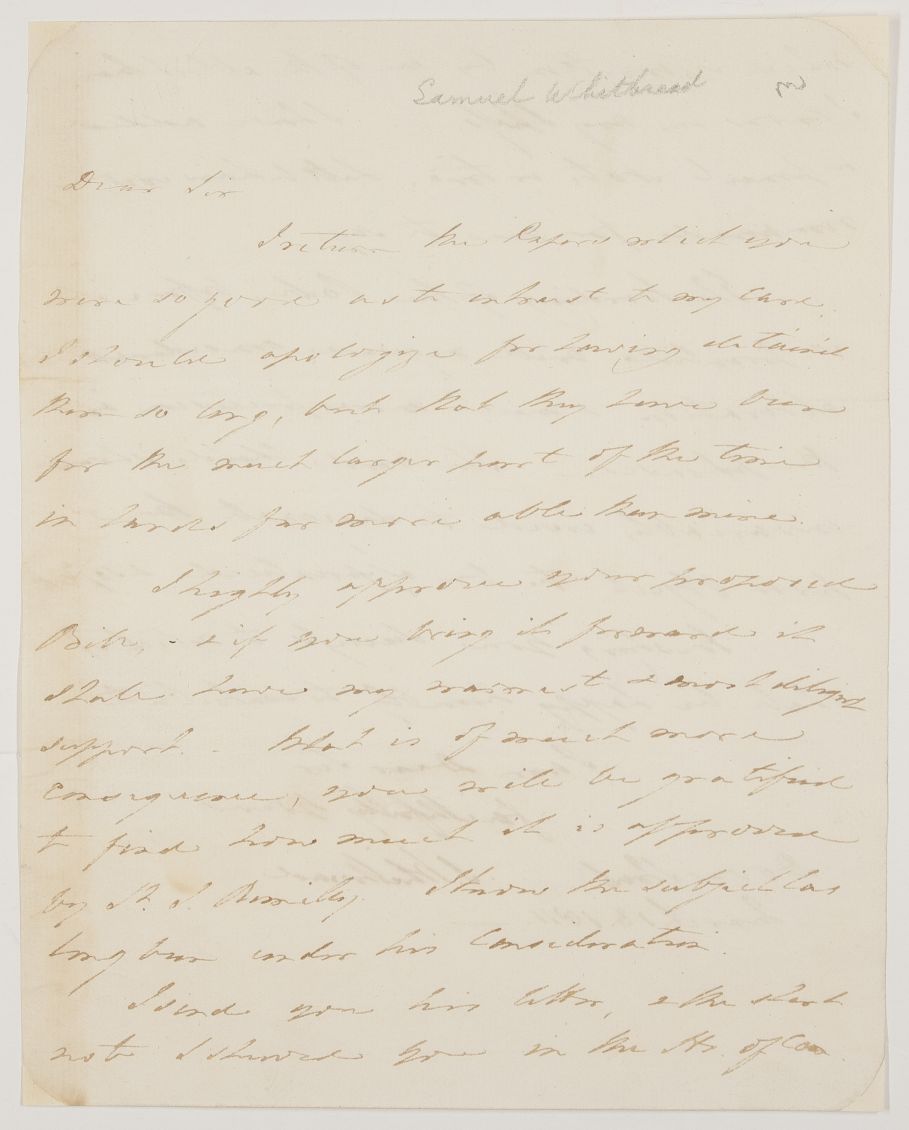 Samuel Whitbread
Dear Sir
I return the Papers which you
were so good as to intrust to my care.
I should apologize for having detained
them so long, but that they have been
for the much larger part of the time
in hands far more able than mine.
I highly approve your proposed
Bill, & if you bring it forward it
shall have my warmest & most diligent
support. - What is of much more
consequence, you will be gratified
to find how much it is approved
by Sr. S. Romilly. I know the subject has
long been under his Consideration.
I send you his letter, & the short
note I shewed you in the Ho. of Com